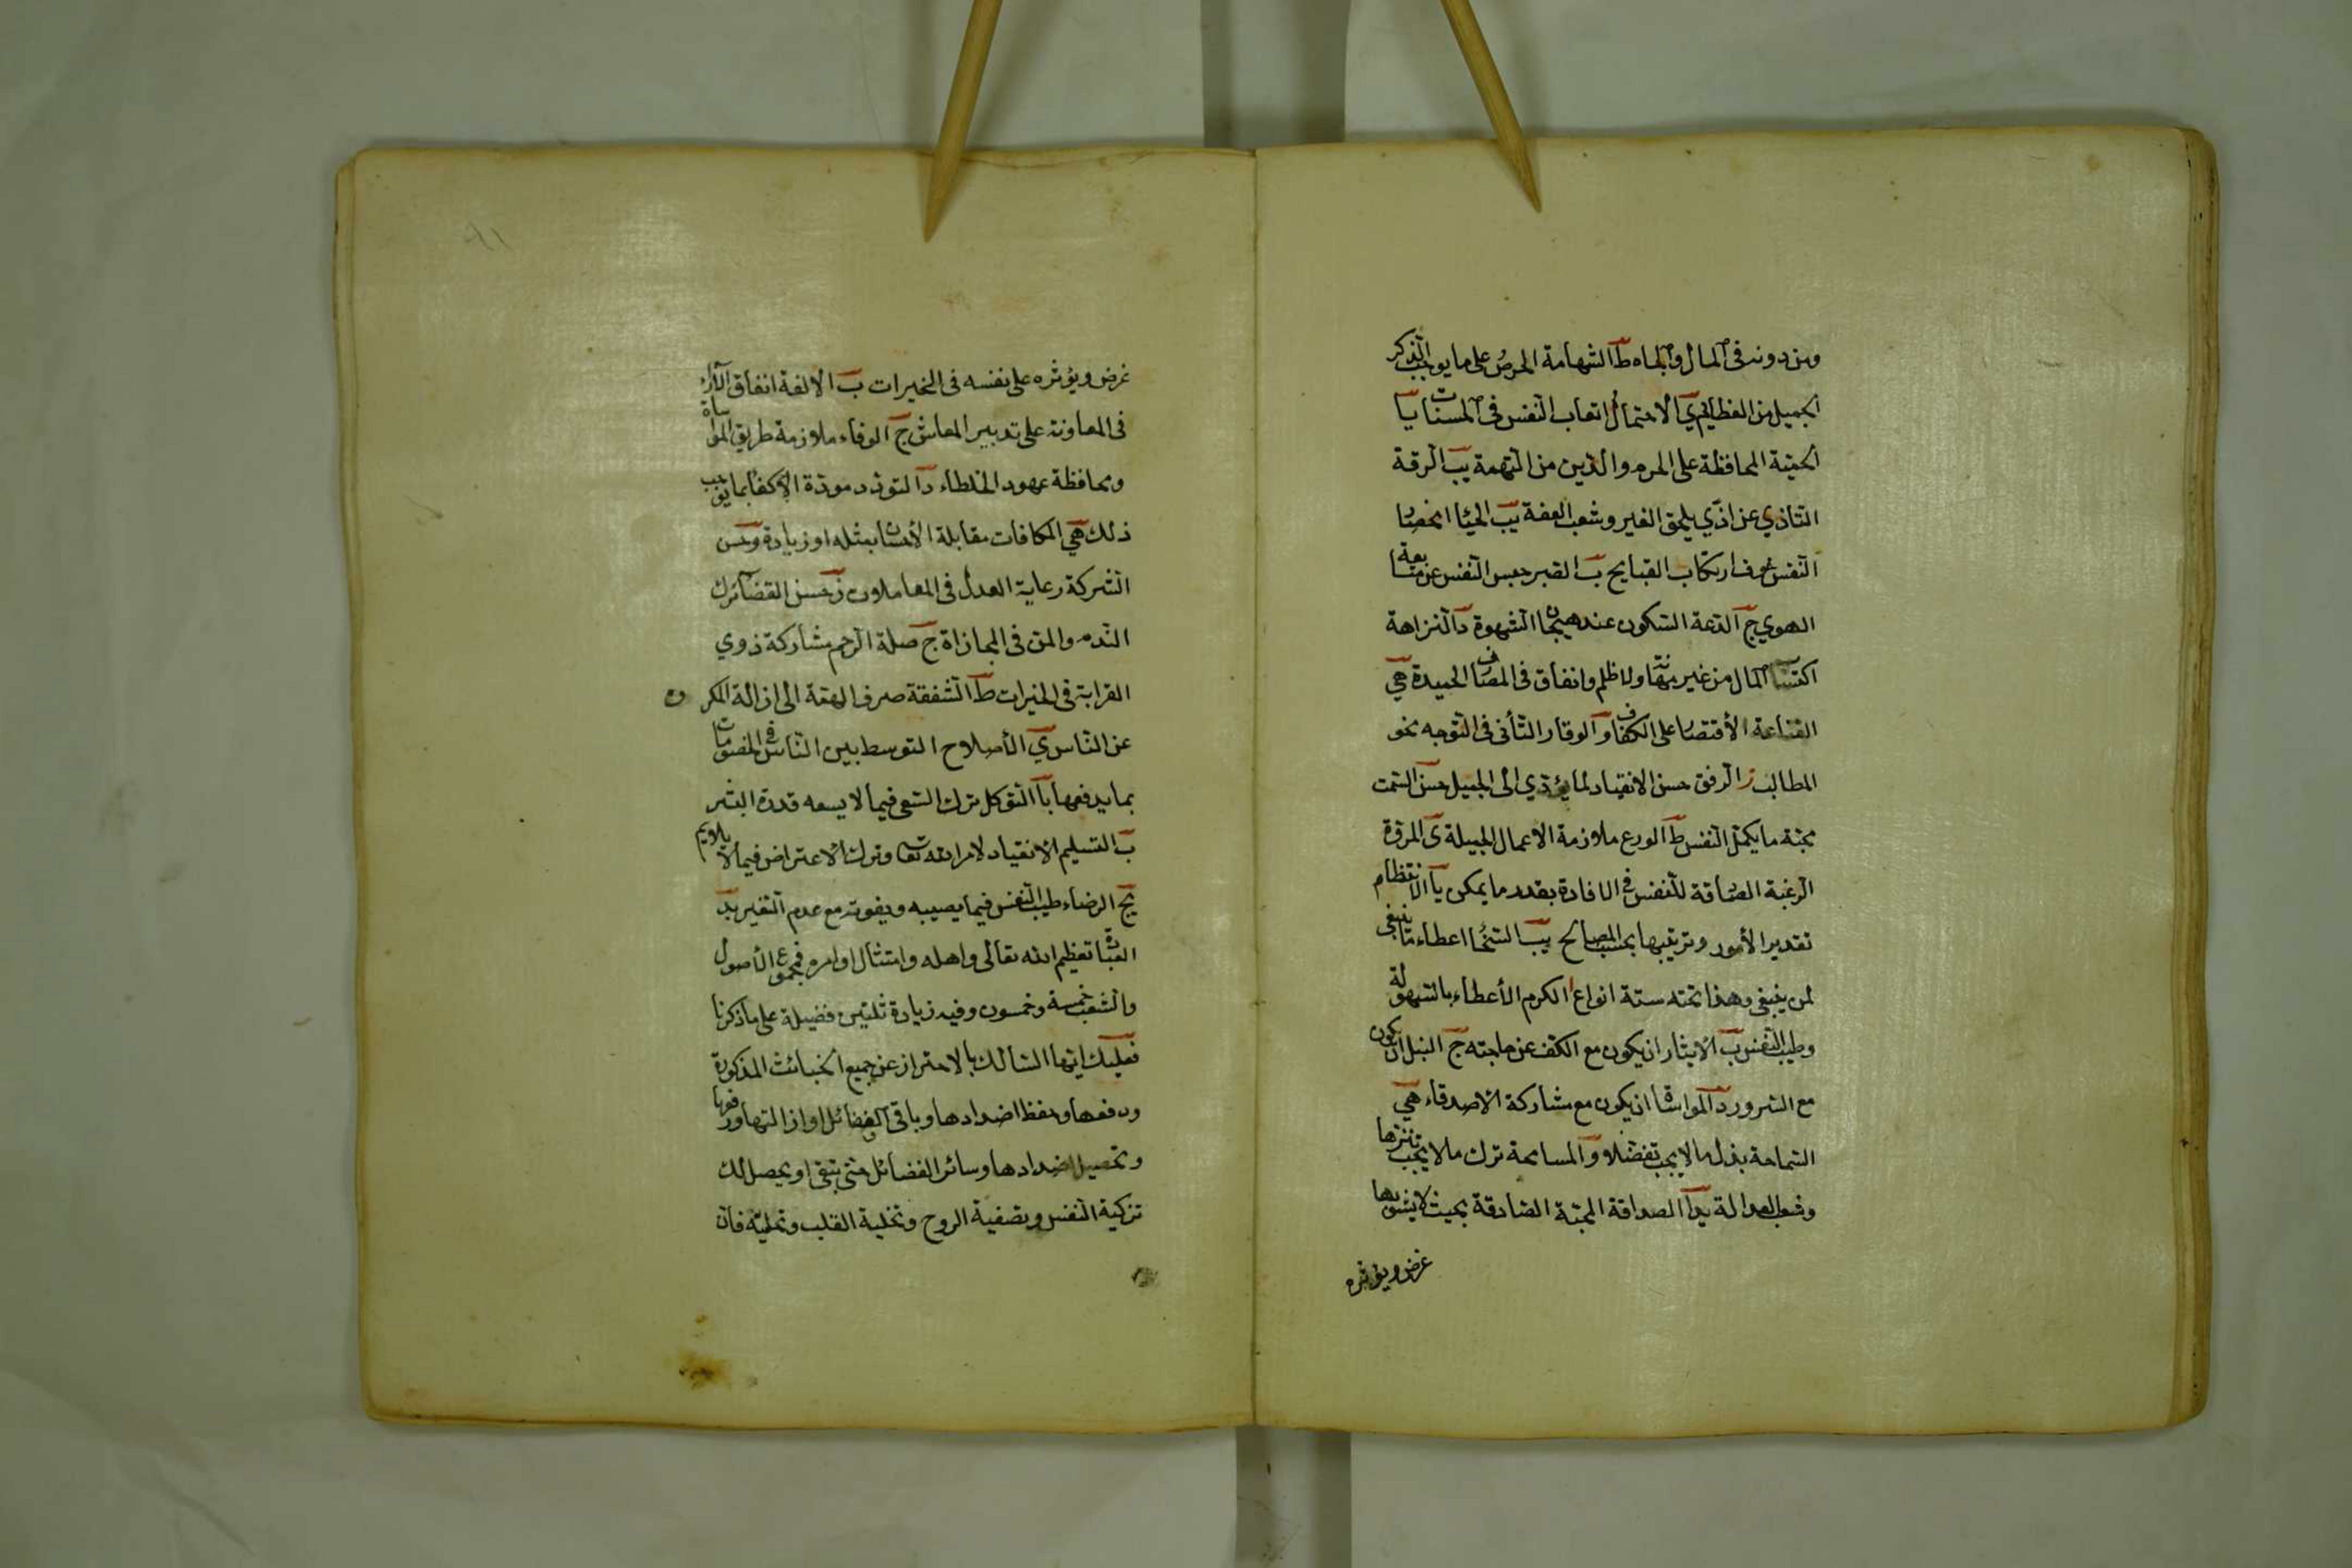 ومن دونه فى المال والجاه ط الشهامة الحرص على ما يوجب الذكر
الجميل من العظائم ي الاحتمال اتعاب النفس فى الحسنات يا
الحمية المحافظة على الحرم والدين من التهمة يب الرقة
التاذي عن اذي يلحق الغير وشعب العفة يب الحيا انحصار
النفس خوف ارتكاب القبايح ب الصبر حبس النفس عن متابعة
الهوي ج الدعة السكون عند هيجان الشهوة د النزاهة
اكتساب المال من غير مهانة ولا ظلم وانفاق فى المصارف الحميدة هـ
القناعة الأقتصار على الكفاف و الوقار التأنى فى التوجه نحو
المطالب ز الرفق حسن الانقياد لما يؤدي الى الجميل ح حسن السمت
محبة ما يكمل النفس ط الورع ملازمة الاعمال الجميلة ى المروة
الرغبة الصادقة للنفس فى الافادة بقدر ما يمكن يا الانتظام
تقدير الأمور وترتيبها بحسب المصالح يب السخا اعطاء ما ينبغى
لمن ينبغى وهذا تحته ستة انواع ا الكرم الأعطاء بالسهولة
وطيب النفس ب الايثار ان يكون مع الكف عن حاجته ج النبل ان يكون
مع السرور د المواساة ان يكون مع مشاركة الاصدقاء هـ
السماحة بذل ما لا يجب تفضلا و المسامحة ترك ما لا يجب تنزها
وشعب العدالة يد ا الصداقة المحبة الصادقة بحيث لا يشوبها
غرض ويؤثره
غرض ويؤثره على نفسه فى الخيرات ب الالفة اتفاق الآراء
فى المعاونة على تدبير المعاش ج الوفاء ملازمة طريق المواساة
ومحافظة عهود الخلطاء د التودد مودة الاكفا بما يوجب
ذلك هـ المكافات مقابلة الأحسان بمثله او زيادة و حسن
الشركة رعاية العدل فى المعاملات ز حسن القضا ترك
الندم والمن فى المجازاة ح صلة الرحم مشاركة ذوي
القرابة فى الخيرات ط الشفقة صرف الهمة الى ازالة المكروه
عن الناس ي الأصلاح التوسط بين الناس فى الخصومات
بما يدفعها يا التوكل ترك السعى فيما لا يسعه قدرة البشر
يب التسليم الانقياد لامر الله تعا وترك الاعتراض فيما لا يلايم
يج الرضاء طيب النفس فيما يصيبه ويفوته مع عدم التغير يد
العبادة تعظيم الله تعالى واهله وامتثال اوامره فمجموع الأصول
والشعب خمسة وخمسون وفيه زيادة ثلثين فضيلة على ما ذكرنا
فعليك ايها السالك بالاحتراز عن جميع الخبائث المذكورة
ودفعها وحفظ اضدادها وباقى الفضائل او ازالتها ورفعها
وتحصيل اضدادها وسائر الفضائل حتى تبقى او يحصل لك
تزكية النفس وتصفية الروح وتخلية القلب وتحليته فان